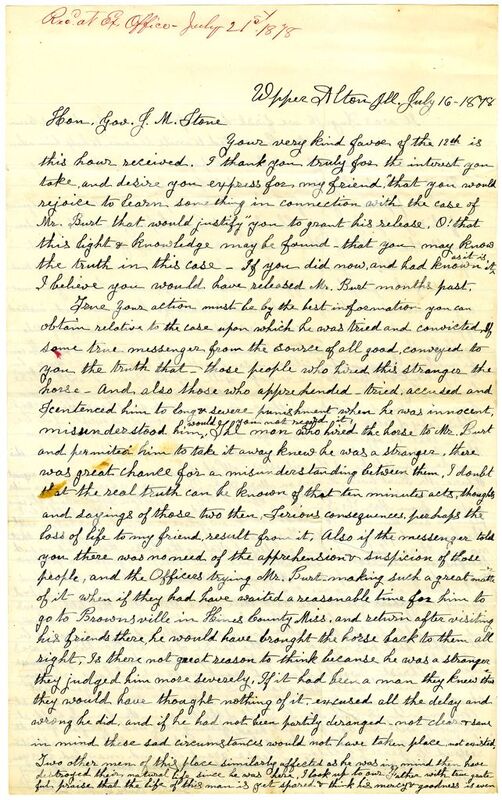 Rec'd. at Ex Office - July 21st 1878
Upper Alton Ill, July 16 - 1878
Hon. Gov. J. M. Stone
Your very kind favor of the 12th is
this hour received. I thank you truly for the interest you
take, and desire you express for my friend "that you would
rejoice to learn something in connection with the case of
Mr. Burt that would justify" you to grant his release. O! that
this light & knowledge may be found - that you may know
the truth in this case - If you did now, and had known it as it is,
I believe you would have released Mr. Burt months past.
True your action must be by the best information you can
obtain relative to the case upon which he was tried and convicted. If
some true messenger from the source of all good, conveyed to
you the truth that - those people who hired this stranger the
horse - And, also those who apprehended - tried, accused and
scentenced him to long & severe punishment when he was innocent,
misunderstood him, would you not regret it. Ill man who hired the horse to Mr. Burt
and permitted him to take it away knew he was a stranger, there
was great chance for a misunderstanding between them. I doubt
that the real truth can be known of that ten minutes acts, thoughts
and sayings of those two then. Serious consequences, perhaps the
loss of life to my friend, result from it. Also if the messenger told
you there was no need of the apprehension & suspicion of those
people, and the Officers trying Mr. Burt, making such a great matter
of it when if they had have waited a reasonable time for him to
go to Brownsville in Hines County Miss. and return after visiting
his friends there, he would have brought the horse back to them all
right, Is there not great reason to think because he was a stranger
they judged him more severely, If it had been a man they knew
they would have thought nothing of it, excused all the delay and
wrong he did, and if he had not been partly deranged - not clear & sane
in mind these sad circumstances would not have taken place not existed
Two other men of this place similarly affected as he was in mind then have
destroyed their natural life since he was there, I look up to our Father with ten grate
ful praise that the life of this man is yet spared & think his mercy & goodness is even